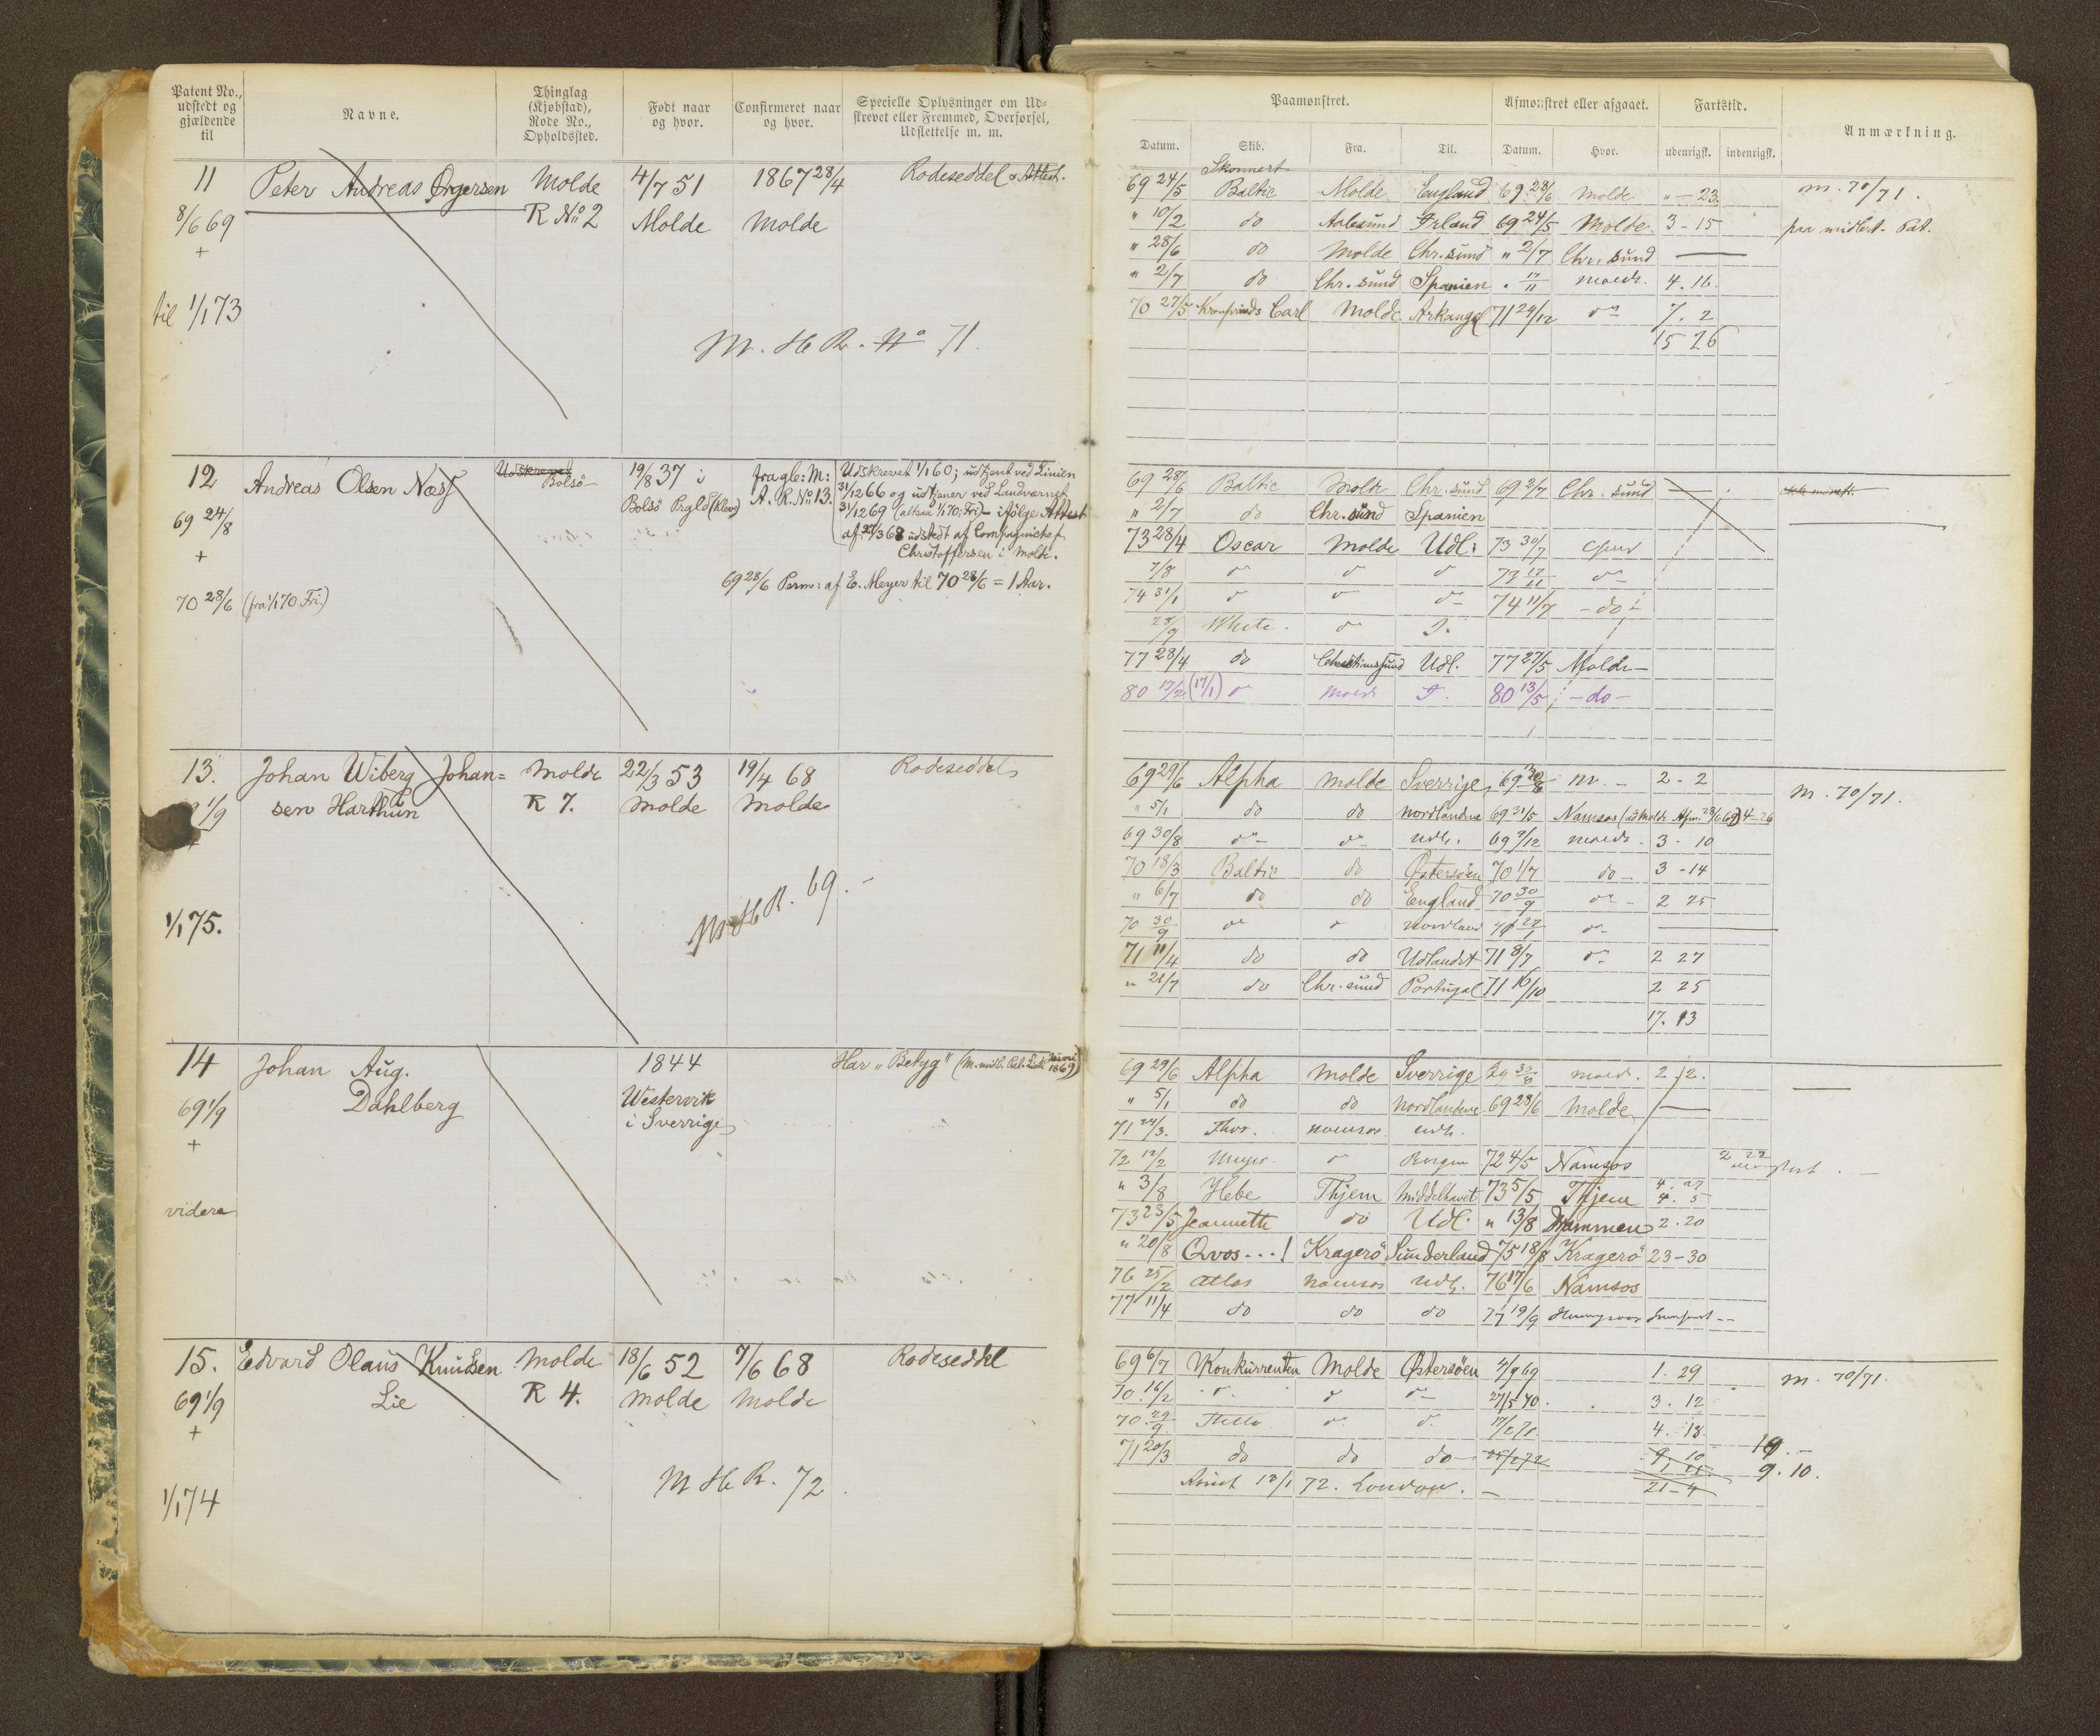 Patent No., udstedt og gjældende til
Navne.
Thinglag (Kjøbstad), Rode No., Opholdssted.
Født naar og hvor.
Confirmeret naar og hvor.
Specielle Oplysninger om Udskrevet eller Fremmed, Overførsel, Udslettelse m. m.
11 Peter Andreas Ørgersen Molde 4/7 51 1867 28/4 Rodeseddel & Attest.
8/6 69 R No 2 Molde Molde
+
til 1/1 73
M. H R. No 71.
12 Andreas Olsen Næss Udskrevet Bolsö 19/8 37 i fra glb: M: Udskrevet 1/1 60; udtjent ved Linien
Bolsö Prgld (Kleve) A. R. No 13. 31/12 66 og udtjener ved Landværnet
69 24/8 31/12 69 (altsaa 1/1 70, Fri) - ifölge Attest
+ af 27/3 68 udstedt af Compagnichef
Christoffersen i Molde.
69 28/6 Perm: af E. Meyer til 70 28/6 = 1 Aar.
70 28/6 (fra 1/1 70 Fri)
13. Johan Wiberg Johan= Molde 22/3 53 19/4 68 Rodeseddel
1/9 sen Harthun R 7. Molde Molde
+
1/1 75.
M H R. 69.
14 Johan Aug. 1844 Har „Betyg" (M. midl. Pat. Liste Juni 1869)
69 1/9 Dahlberg Westervik
+ i Sverrige
videre
15. Edvard Olaus Knudsen Molde 18/6 52 7/6 68 Rodeseddel
69 1/9 Lie R 4. Molde Molde
+
1/1 74
M H R. 72
Paamønstret.
Afmønstret eller afgaaet.
Fartstid.
Anmærkning.
Datum. Skib. Fra. Til. Datum. Hvor. udenrigsk. indenrigsk.
Skonnert
69 24/5 Baltic Molde England 69 28/6 Molde " - 23. M. 70/71.
" 10/2 do Aalesund Irland 69 24/5 Molde 3 - 15 paa midlert. Pat.
" 28/6 do Molde Chr. sund " 2/7 Chr. sund —
" 2/7 do Chr. sund Spanien " 17/11 Molde. 4. 16.
70 27/5 Kronprinds Carl Molde Arkangel 71 24/12 do 7. 2
15 26
69 28/6 Baltic Molde Chr. sund 69 2/7 Chr. sund —
" 2/7 do Chr. sund Spanien
73 28/4 Oscar Molde Udl. 73 30/7
7/8 do do do 73 17/11 do
74 31/1 do do do 74 11/7 - do -
28/9 White. do
77 28/4 do Christianssund Udl. 77 27/5 Molde —
80 17/2 (17/1) do Molde 80 13/5 - do -
69 29/6 Alpha Molde Sverrige 69 30/8 M. - 2 - 2 M. 70/71.
" 5/1 do do Nordlandene 69 31/5 Namsos (ad Molde Afm. 28/6 69) 4-26
69 30/8 do do Udl. 69 9/12 Molde. 3. 10
70 18/3 Baltic do Østersöen 70 1/7 do - 3 - 14
" 6/7 do do England 70 30/9 do - 2 25
70 30/9 do do Nordland 71 27/1 do —
71 11/4 do do Udlandet 71 8/7 do 2 27
" 21/7 do Chr. sund Portugal 71 16/10 2 25
17. 13
69 29/6 Alpha Molde Sverrige 69 30/8 Molde. 2 2. —
" 5/1 do do Nordlandene 69 28/6 Molde —
71 24/3. Thor. Namsos Udl.
72 12/2 do Bergen 72 4/5 Namsos 2 22
" 3/8 Hebe Thjem Middelhavet 73 5/5 Thjem 4. 5
73 23/5 Jeannette do Udl. " 13/8 Drammen 2. 20
" 20/8 Qvos...! Krageró Sunderland 75 18/8 Krageró 23-30
76 25/2 Atlas Namsos Udl. 76 17/6 Namsos
77 11/4 do do do 77 19/9
69 6/7 Konkurrenten Molde Østersöen 4/9 69 1. 29 M. 70/71.
70. 16/2 do do do 27/5 70. 3. 12
70. 29/9 Stella do do 17/2 71. 4. 18
71 20/3 do do do 9 10 19. -
Afmst 13/1 72. London. - 21-4 9. 10.